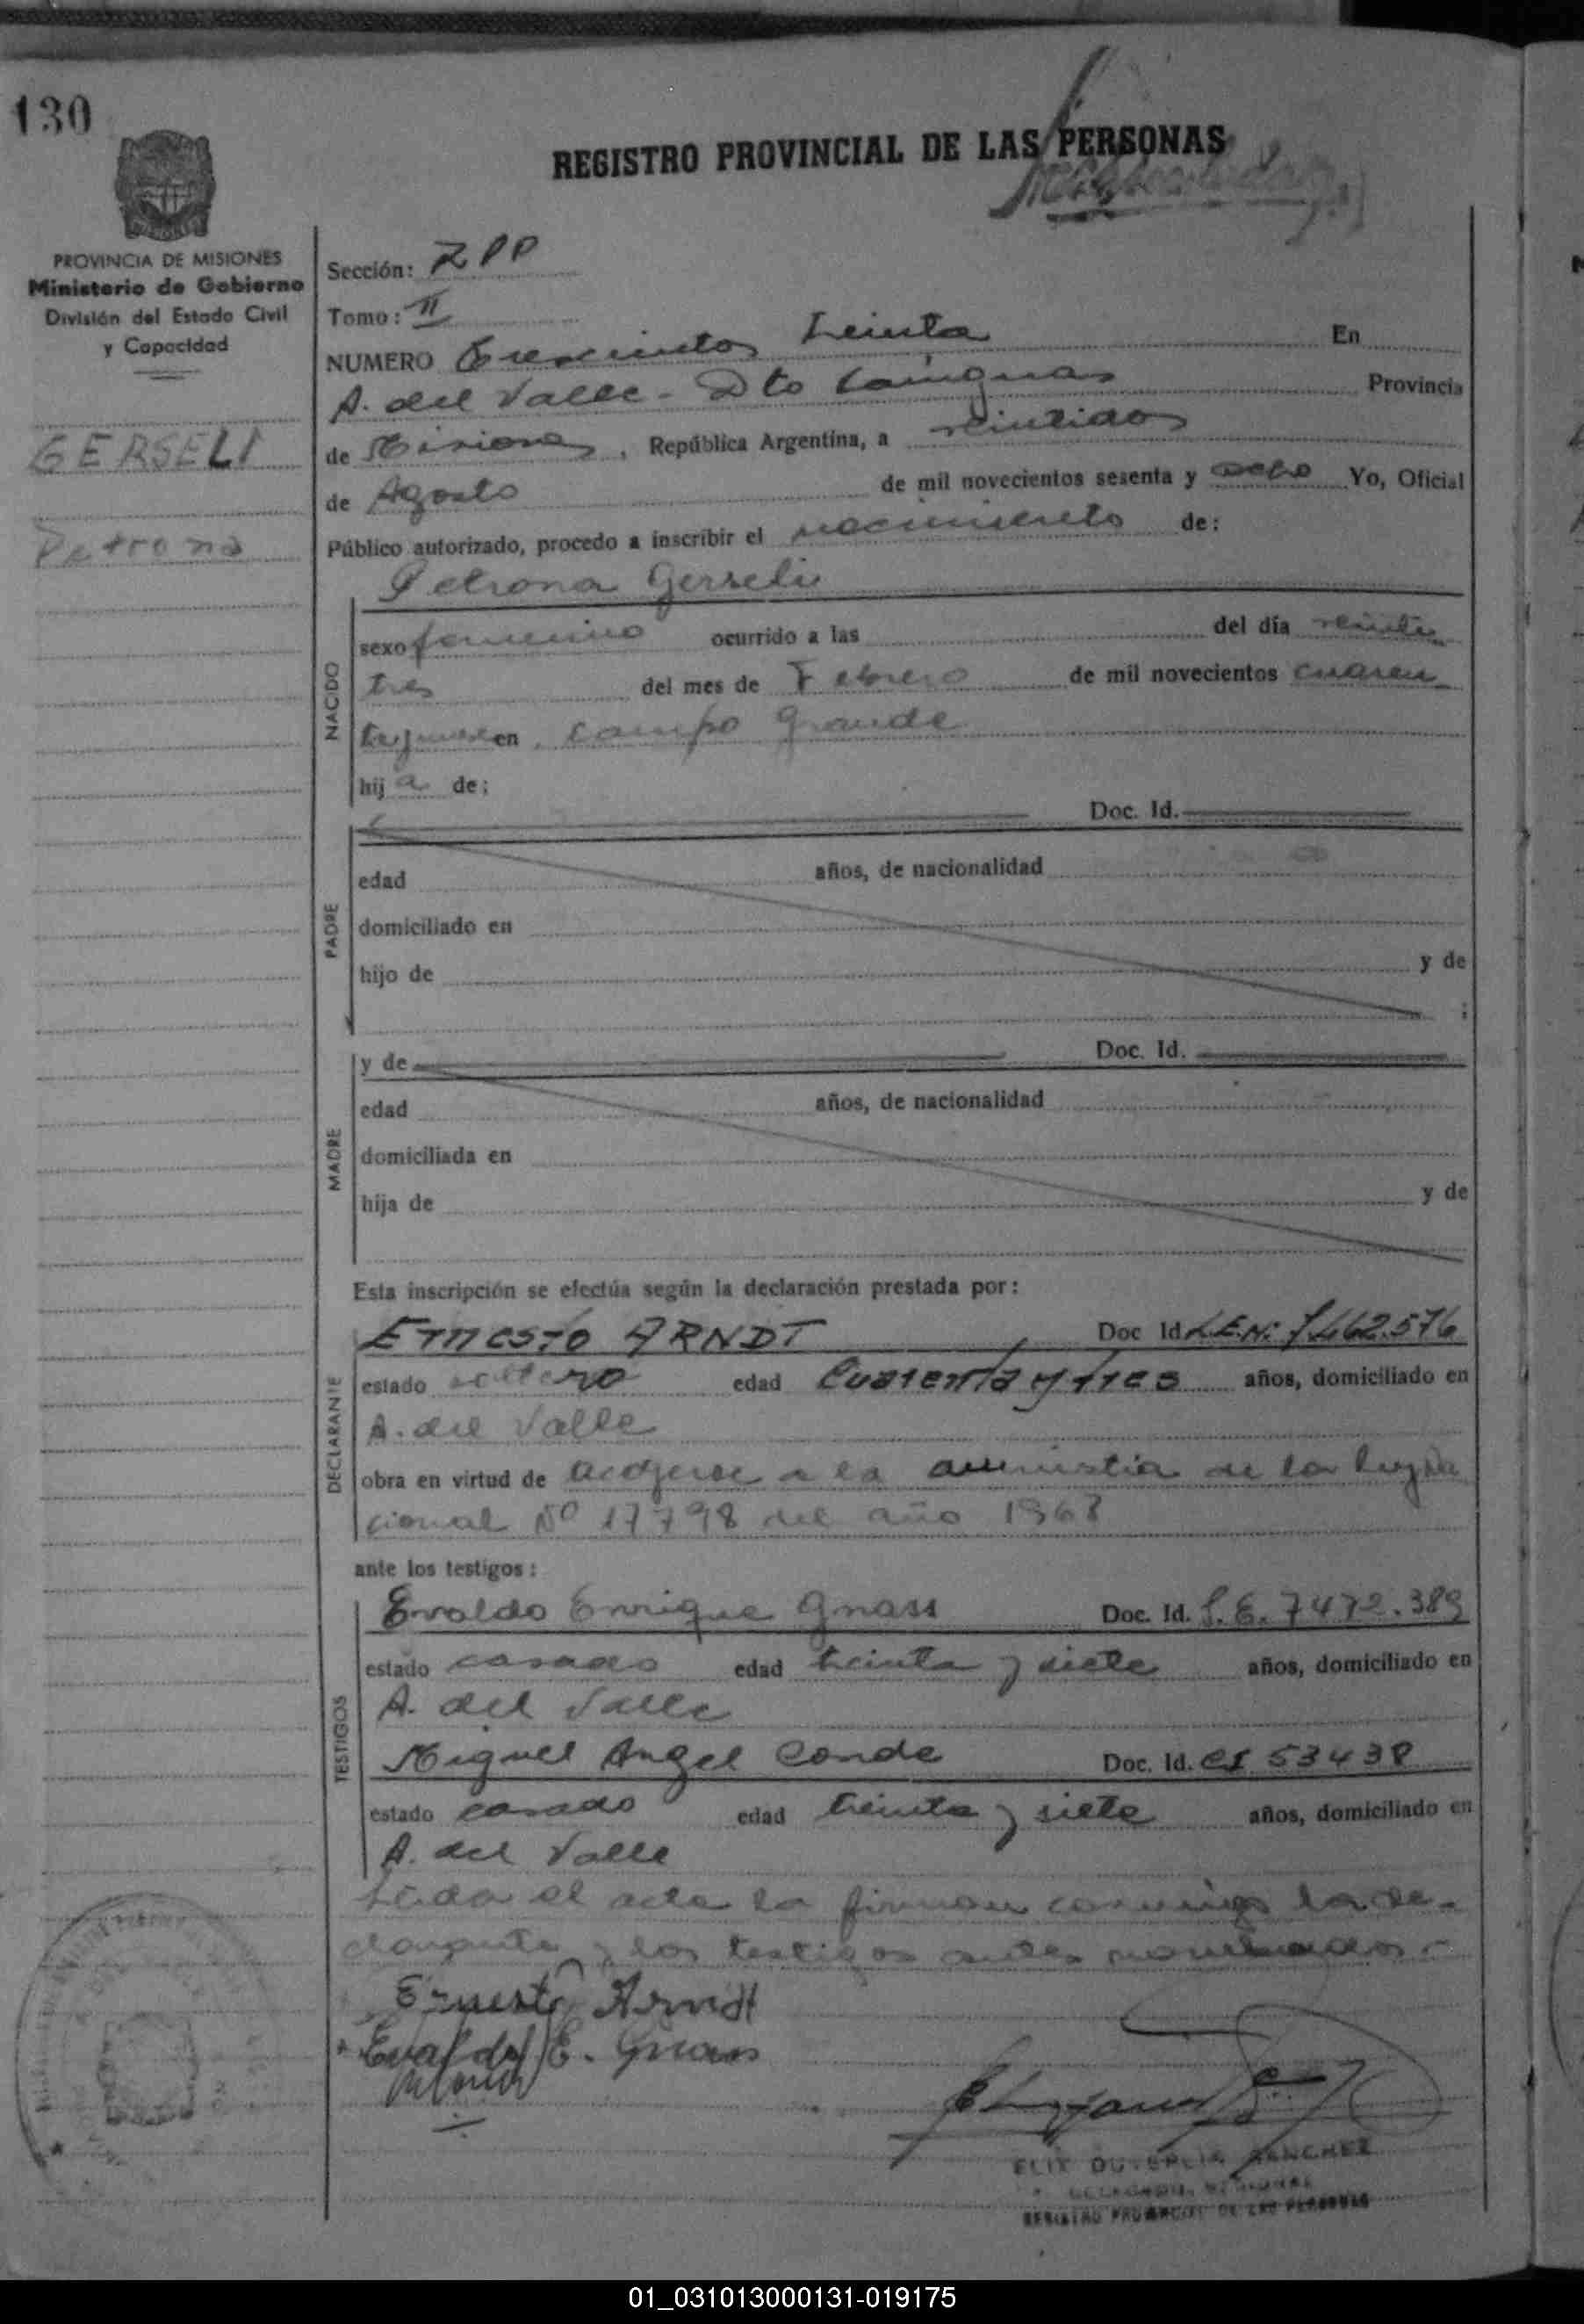 130
REGISTRO PROVINCIAL DE LAS PERSONAS
PROVINCIA DE MISIONES
Ministerio de Gobierno
División del Estado Civil
y Capacidad
GERSELI
Petrona
Sección: RPP
Tomo: II
NUMERO Trescientos treinta En
A. del Valle - Dto Cainguas Provincia
de Misiones, República Argentina, a veintidos
de Agosto de mil novecientos sesenta y ocho Yo, Oficial
Público autorizado, procedo a inscribir el nacimiento de:
Petrona Gerseli
NACIDO
sexo femenino ocurrido a las del día veinti
tres del mes de Febrero de mil novecientos cuaren
ta y nueve en Campo Grande
hija de:
Doc. Id.
PADRE
edad años, de nacionalidad
domiciliado en
hijo de y de
;
MADRE
y de Doc. Id.
edad años, de nacionalidad
domiciliada en
hija de y de
Esta inscripción se efectúa según la declaración prestada por:
DECLARANTE
Ernesto ARNDT Doc Id L.E.Nº 7.462.576
estado soltero edad Cuarenta y tres años, domiciliado en
A. del Valle
obra en virtud de acojerse a la amnistia de la ley Na
cional Nº 17798 del año 1968
ante los testigos:
TESTIGOS
Evaldo Enrique Gnass Doc. Id. L.E. 7472.389
estado casado edad treinta y siete años, domiciliado en
A. del Valle
Miguel Angel Conde Doc. Id. CI 53438
estado casado edad treinta y siete años, domiciliado en
A. del Valle
Leida el acta la firman conmigo la de-
clarante y los testigos antes nombrados.-
Ernesto Arndt
Evaldo E. Gnass
SANCHEZ
DELEGADO REGIONAL
REGISTRO PROVINCIAL DE LAS PERSONAS
01_031013000131-019175